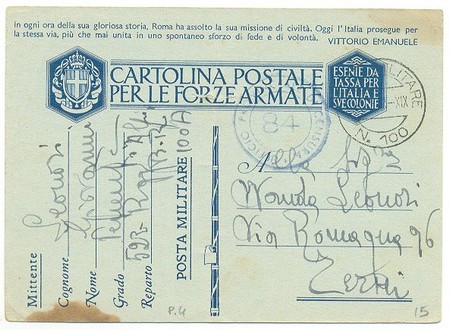 in ogni ora della sua gloriosa storia, Roma ha assolto la sua missione di civiltà. Oggi l'Italia prosegue per
la stessa via, più che mai unita in uno spontaneo sforzo di fede e di volontà. VITTORIO EMANUELE
CARTOLINA POSTALE
PER LE FORZE ARMATE
ESENTE DA
TASSA PER
L'ITALIA E
SVE COLONIE
84
XIX
N. 100
Mittente
Cognome Leonori
Nome Giovanni
Grado
Reparto 523
POSTA MILITARE 100A
Alla Sig.ra
Wanda Leonori
Via Romagna 96
Terni
P.4
15